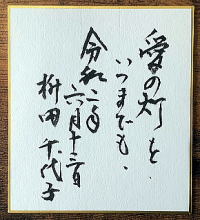 愛の灯を
いつまでも、
令和二年
六月十三日
桝田千代子